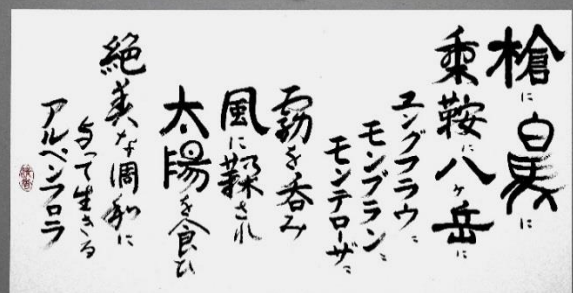 槍に白馬に
乗鞍に八ヶ岳に
ユングフラウに
モンブランに
モンテローザに
霧を呑み
風に鞣され
太陽を食ひ
絶美な調和に
与って生きる
アルペンフロラ